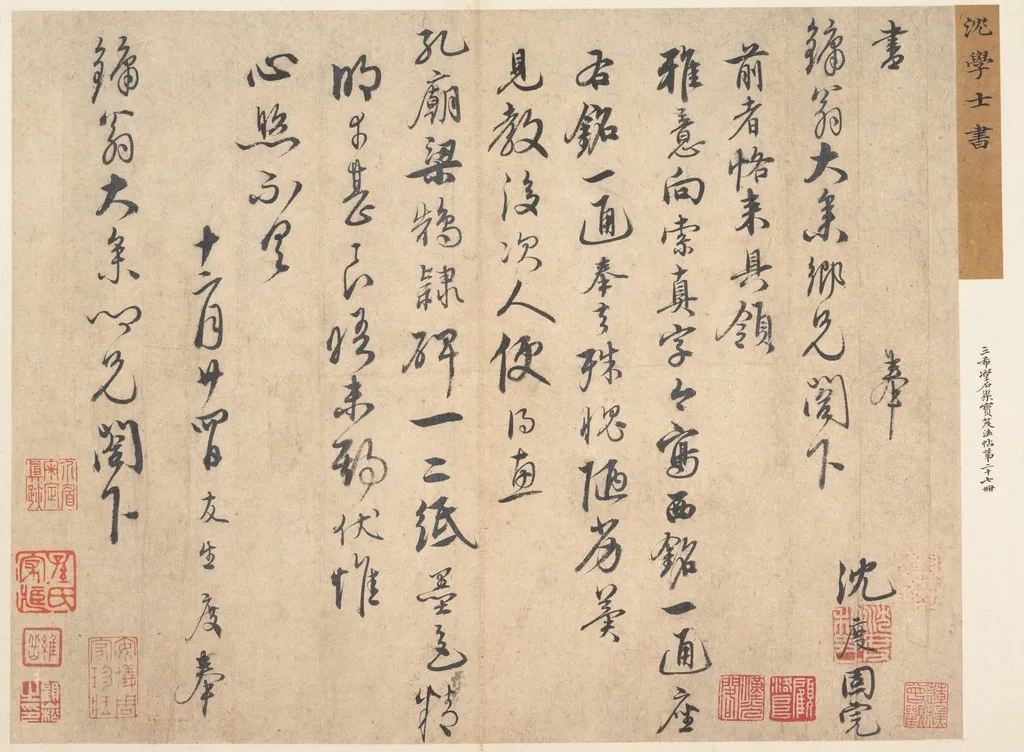 沈學士書
三希堂石渠寶笈法帖第二十七冊
書 奉
鏞翁大參鄉兄閣下
沈度固完
前者恪來具領
雅意向索真字今寫西銘一通座
右銘一通奉去殊愧陋劣冀
見教後次人便得惠
孔廟梁鵠隸碑一二紙墨色精
明幸甚良晤未期伏惟
心照不具
十二月廿四日友生度奉
鏞翁大參鄉兄閣下
安儀周家珍藏